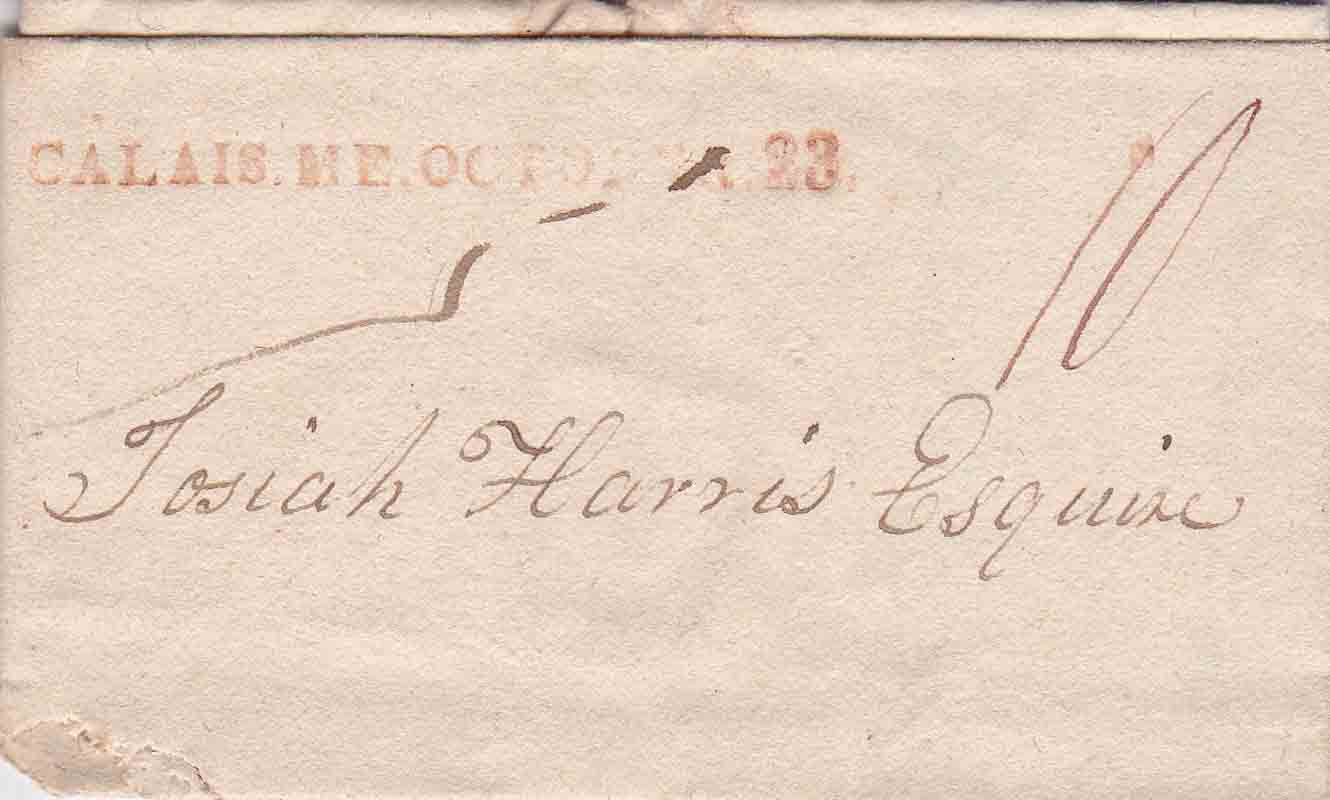 CALAIS. ME. OCTOBER. 23.
10
Josiah Harris Esquire